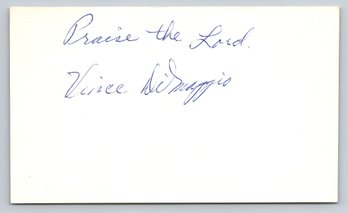 Praise the Lord.
Vince DiMaggio